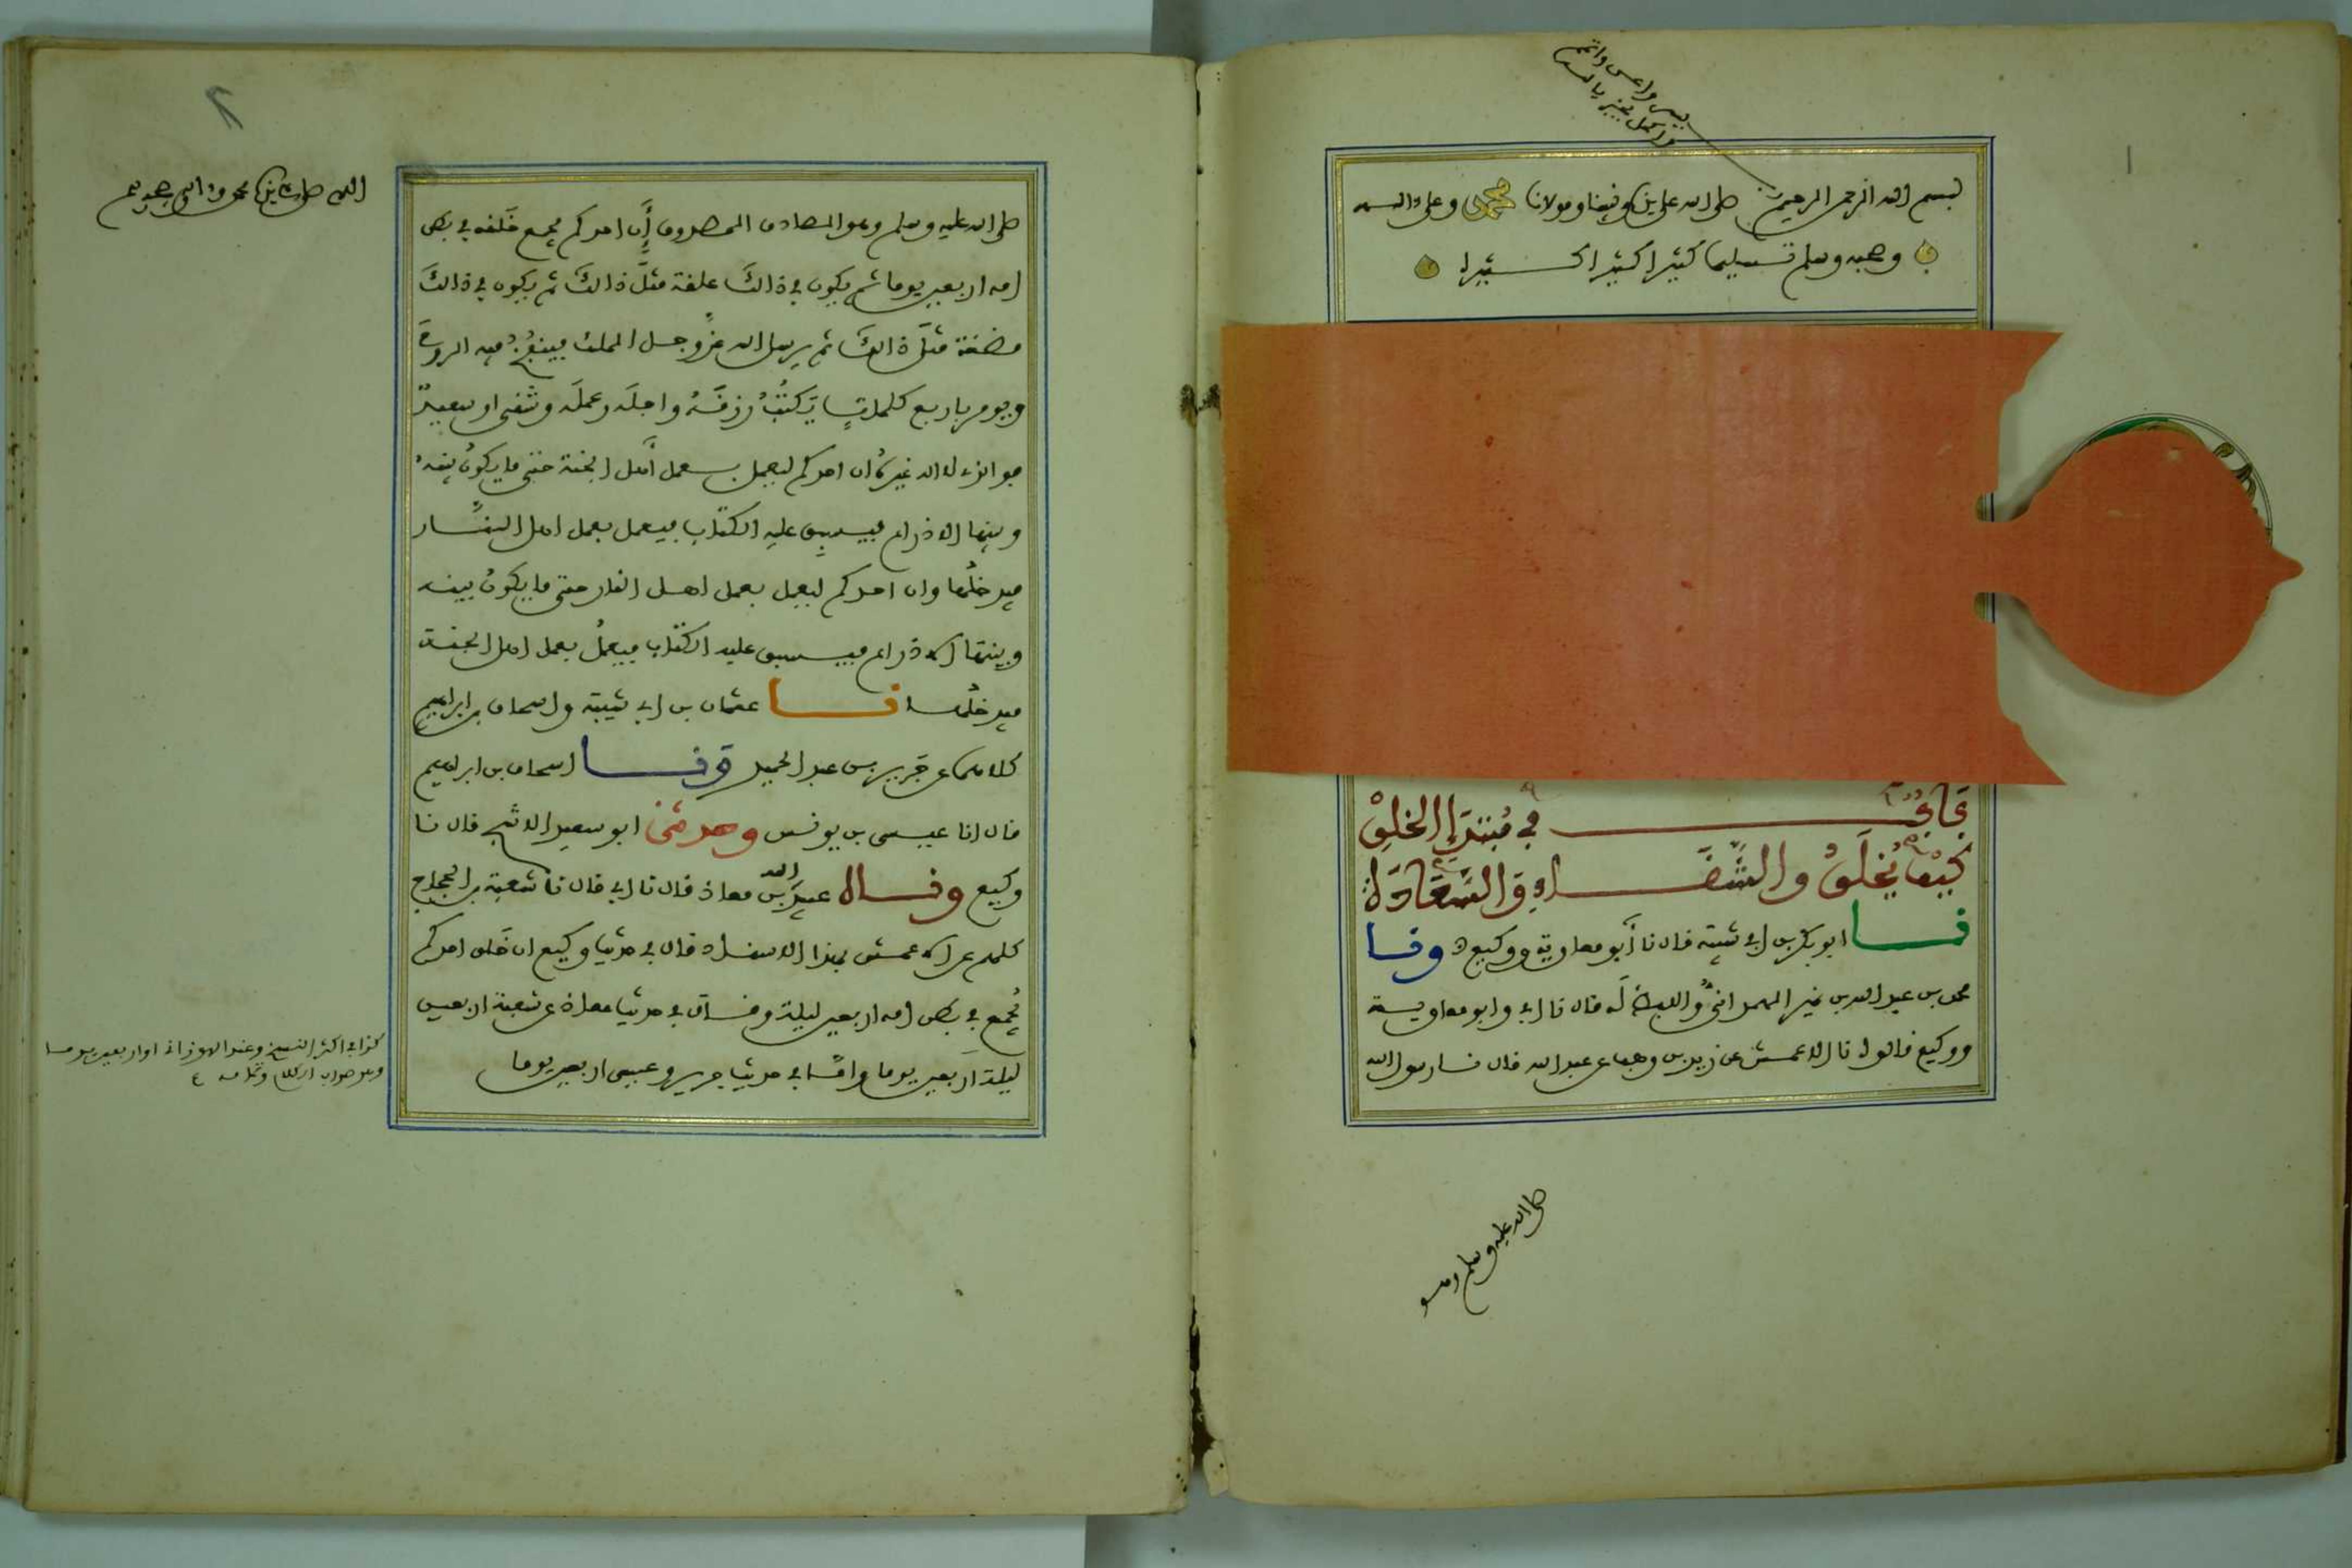 يسر واعن واتمم
واكمل بخير يا الله
١
بسم الله الرحمن الرحيم صلى الله على سيدنا ونبينا ومولانا محمد وعلى ءاله
وصحبه وسلم تسليما كثيرا كثيرا كثيرا
باب في مبتدإ الخلق
كيف يخلق والشقاء والسعادة
نا ابو بكر بن ابي شيبة قال نا أبو معاوية ووكيع ونا
محمد بن عبد الله بن نمير الهمداني واللفظ له قال نا ابي وابو معاوية
ووكيع قالوا نا الاعمش عن زيد بن وهب عن عبد الله قال نا رسول الله
صلى الله عليه وسلم وهو
٢
اللهم صل على سيدنا محمد وءاله وصحبه
صلى الله عليه وسلم وهو الصادق المصدوق أن احدكم يجمع خلقه في بطن
امه اربعين يوما ثم يكون في ذالك علقة مثل ذالك ثم يكون في ذالك
مضغة مثل ذالك ثم يرسل الله عز وجل الملك فينفخ فيه الروح
ويومر باربع كلمات يكتب رزقه واجله وعمله وشقي او سعيد
فو الذي لا اله غيره ان احدكم ليعمل بعمل أهل الجنة حتى ما يكون بينه
وبينها الا ذراع فيسبق عليه الكتاب فيعمل بعمل اهل النار
فيدخلها وان احدكم ليعمل بعمل اهل النار حتى ما يكون بينه
وبينها الا ذراع فيسبق عليه الكتاب فيعمل بعمل اهل الجنة
فيدخلها نا عثمان بن ابي شيبة واسحاق بن ابراهيم
كلاهما عن جرير بن عبد الحميد ونا اسحاق بن ابراهيم
قال انا عيسى بن يونس وحدثني ابو سعيد الاشج قال نا
وكيع ونا عبيد الله بن معاذ قال نا ابي قال نا شعبة بن الحجاج
كلهم عن الاعمش بهذا الاسناد قال في حديث وكيع ان خلق احدكم
يجمع في بطن امه اربعين ليلة وقال في حديث معاذ عن شعبة اربعين
ليلة اربعين يوما واما في حديث جرير وعيسى اربعين يوما
كذا في اكثر النسخ وعند الهوزاني او اربعين يوما
وهو صواب الكلام